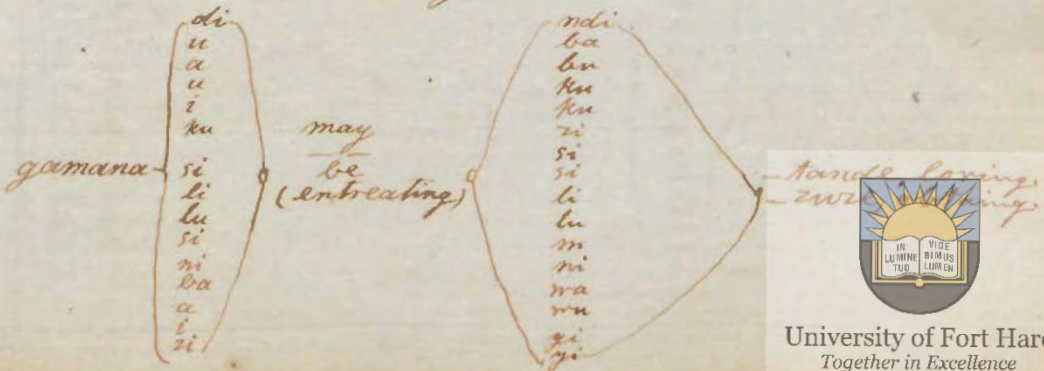 di
u
a
u
i
ku
gamana
si
li
lu
si
ni
ba
a
i
zi
may
be
(entreating)
ndi
ba
bu
ku
ku
zi
si
si
li
lu
m
ni
wa
wu
yi
yi
tande loving.
IN LUMINE TUO
VIDE BIMUS LUMEN
University of Fort Hare
Together in Excellence